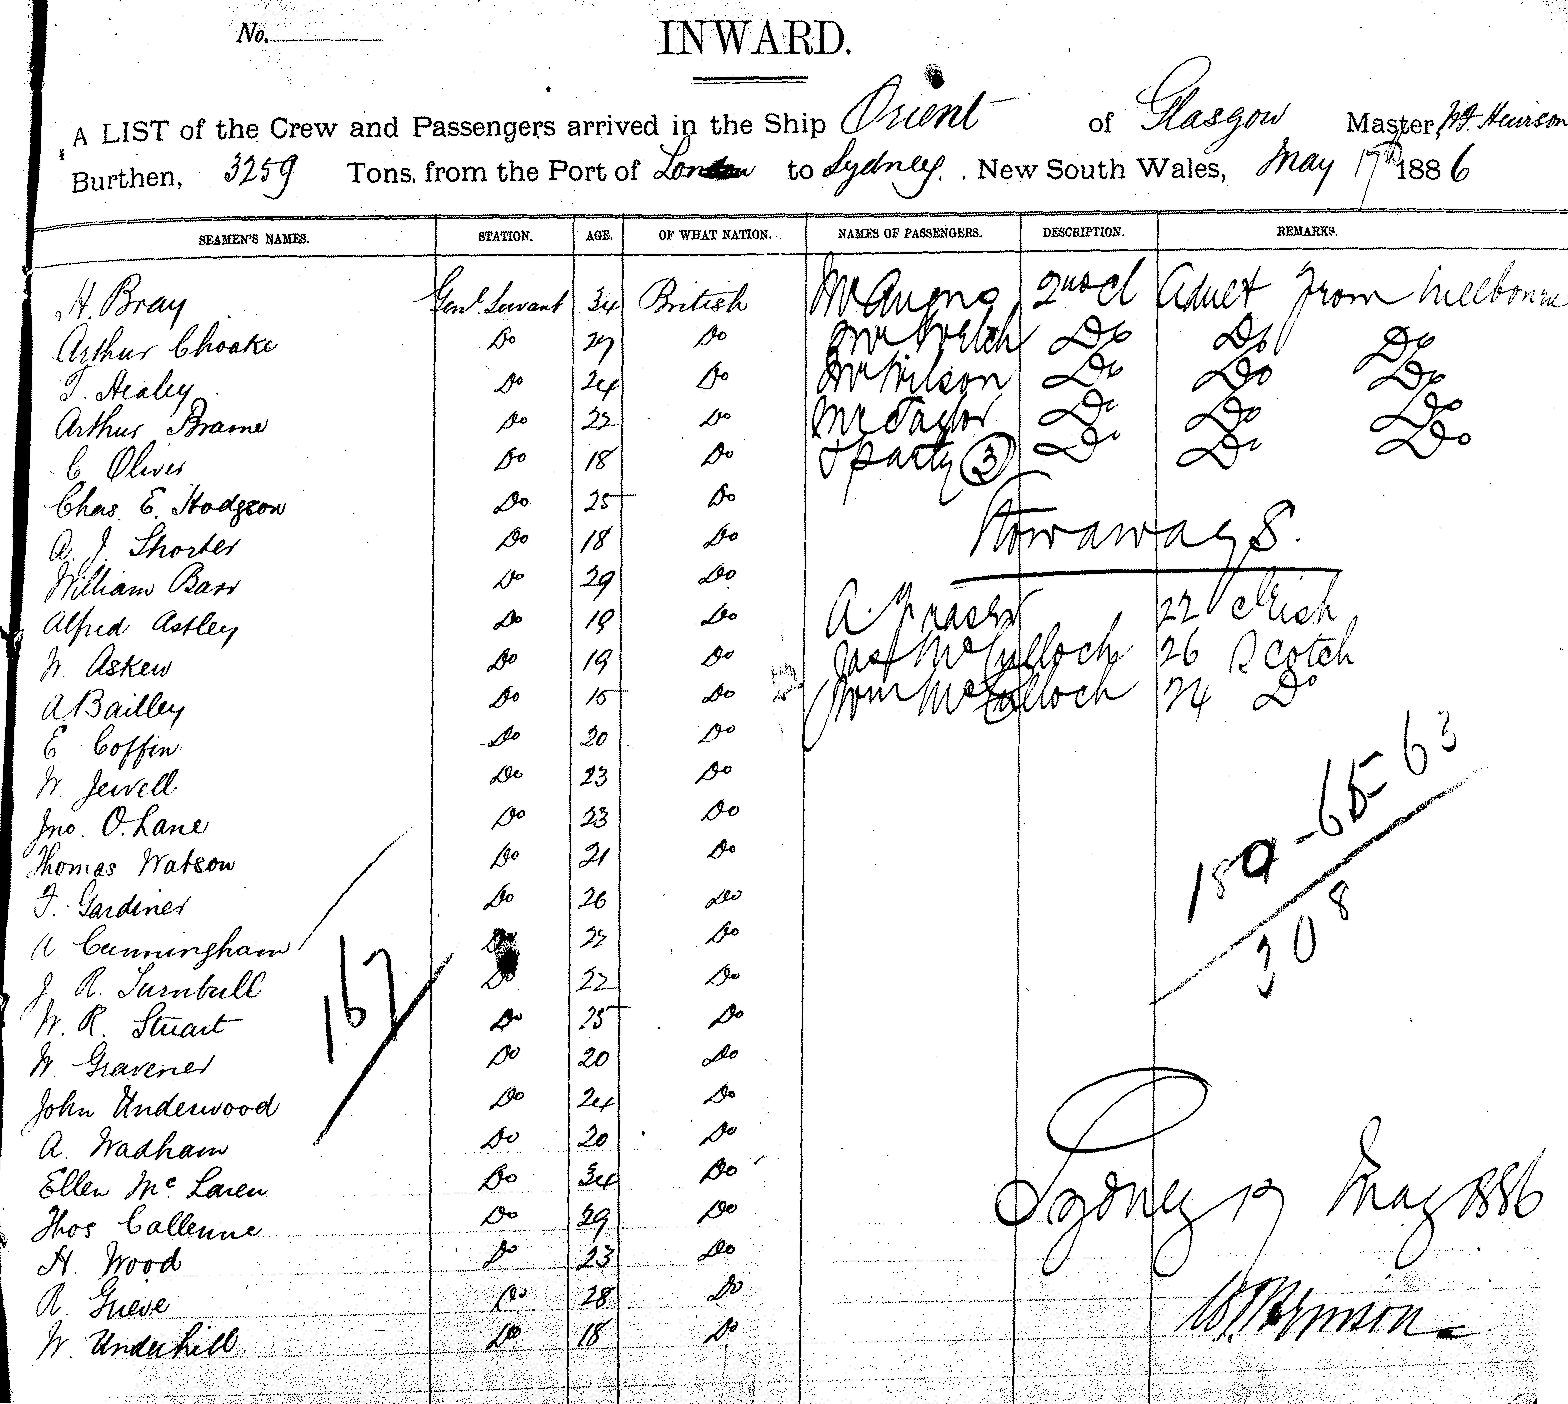 No.
INWARD.
A LIST of the Crew and Passengers arrived in the Ship Orient of Glasgow Master,
Burthen, 3259 Tons. from the Port of London to Sydney. New South Wales, May 17th 1886
SEAMEN'S NAMES. STATION. AGE. OF WHAT NATION. NAMES OF PASSENGERS. DESCRIPTION. REMARKS.
H. Bray Genl. Servant 34 British Mr 2nd cl Adult From Melbourne
Arthur Choake Do 27 Do Mr Welch Do Do Do
T. Healey Do 24 Do Mr Wilson Do Do Do
Arthur Brame Do 22 Do Mr Taylor Do Do Do
C Oliver Do 18 Do & party 3 Do Do Do
Chas. E. Hodgson Do 25 Do
Stowaways.
A. J. Shorter Do 18 Do
William Barr Do 29 Do A. Fraser 22 Irish
Alfred Astley Do 19 Do Jas McCulloch 26 Scotch
W. Askew Do 19 Do McCulloch 24 Do
A Bailley Do 15 Do
E Coffin Do 20 Do
W. Jewell Do 23 Do
Jno. O. Lane Do 23 Do
Thomas Watson Do 21 Do
F. Gardiner Do 26 Do
A Cunningham Do 22 Do
J. R. Turnbull Do 22 Do
W. R. Stuart Do 25 Do
W. Gravener Do 20 Do
John Underwood Do 24 Do
A. Wadham Do 20 Do
Ellen Mc Laren Do 34 Do
Thos Callenne Do 29 Do
H. Wood Do 23 Do
R. Grieve Do 28 Do
W. Underhill Do 18 Do
167
189-65-63
308
Sydney 17 May 1886